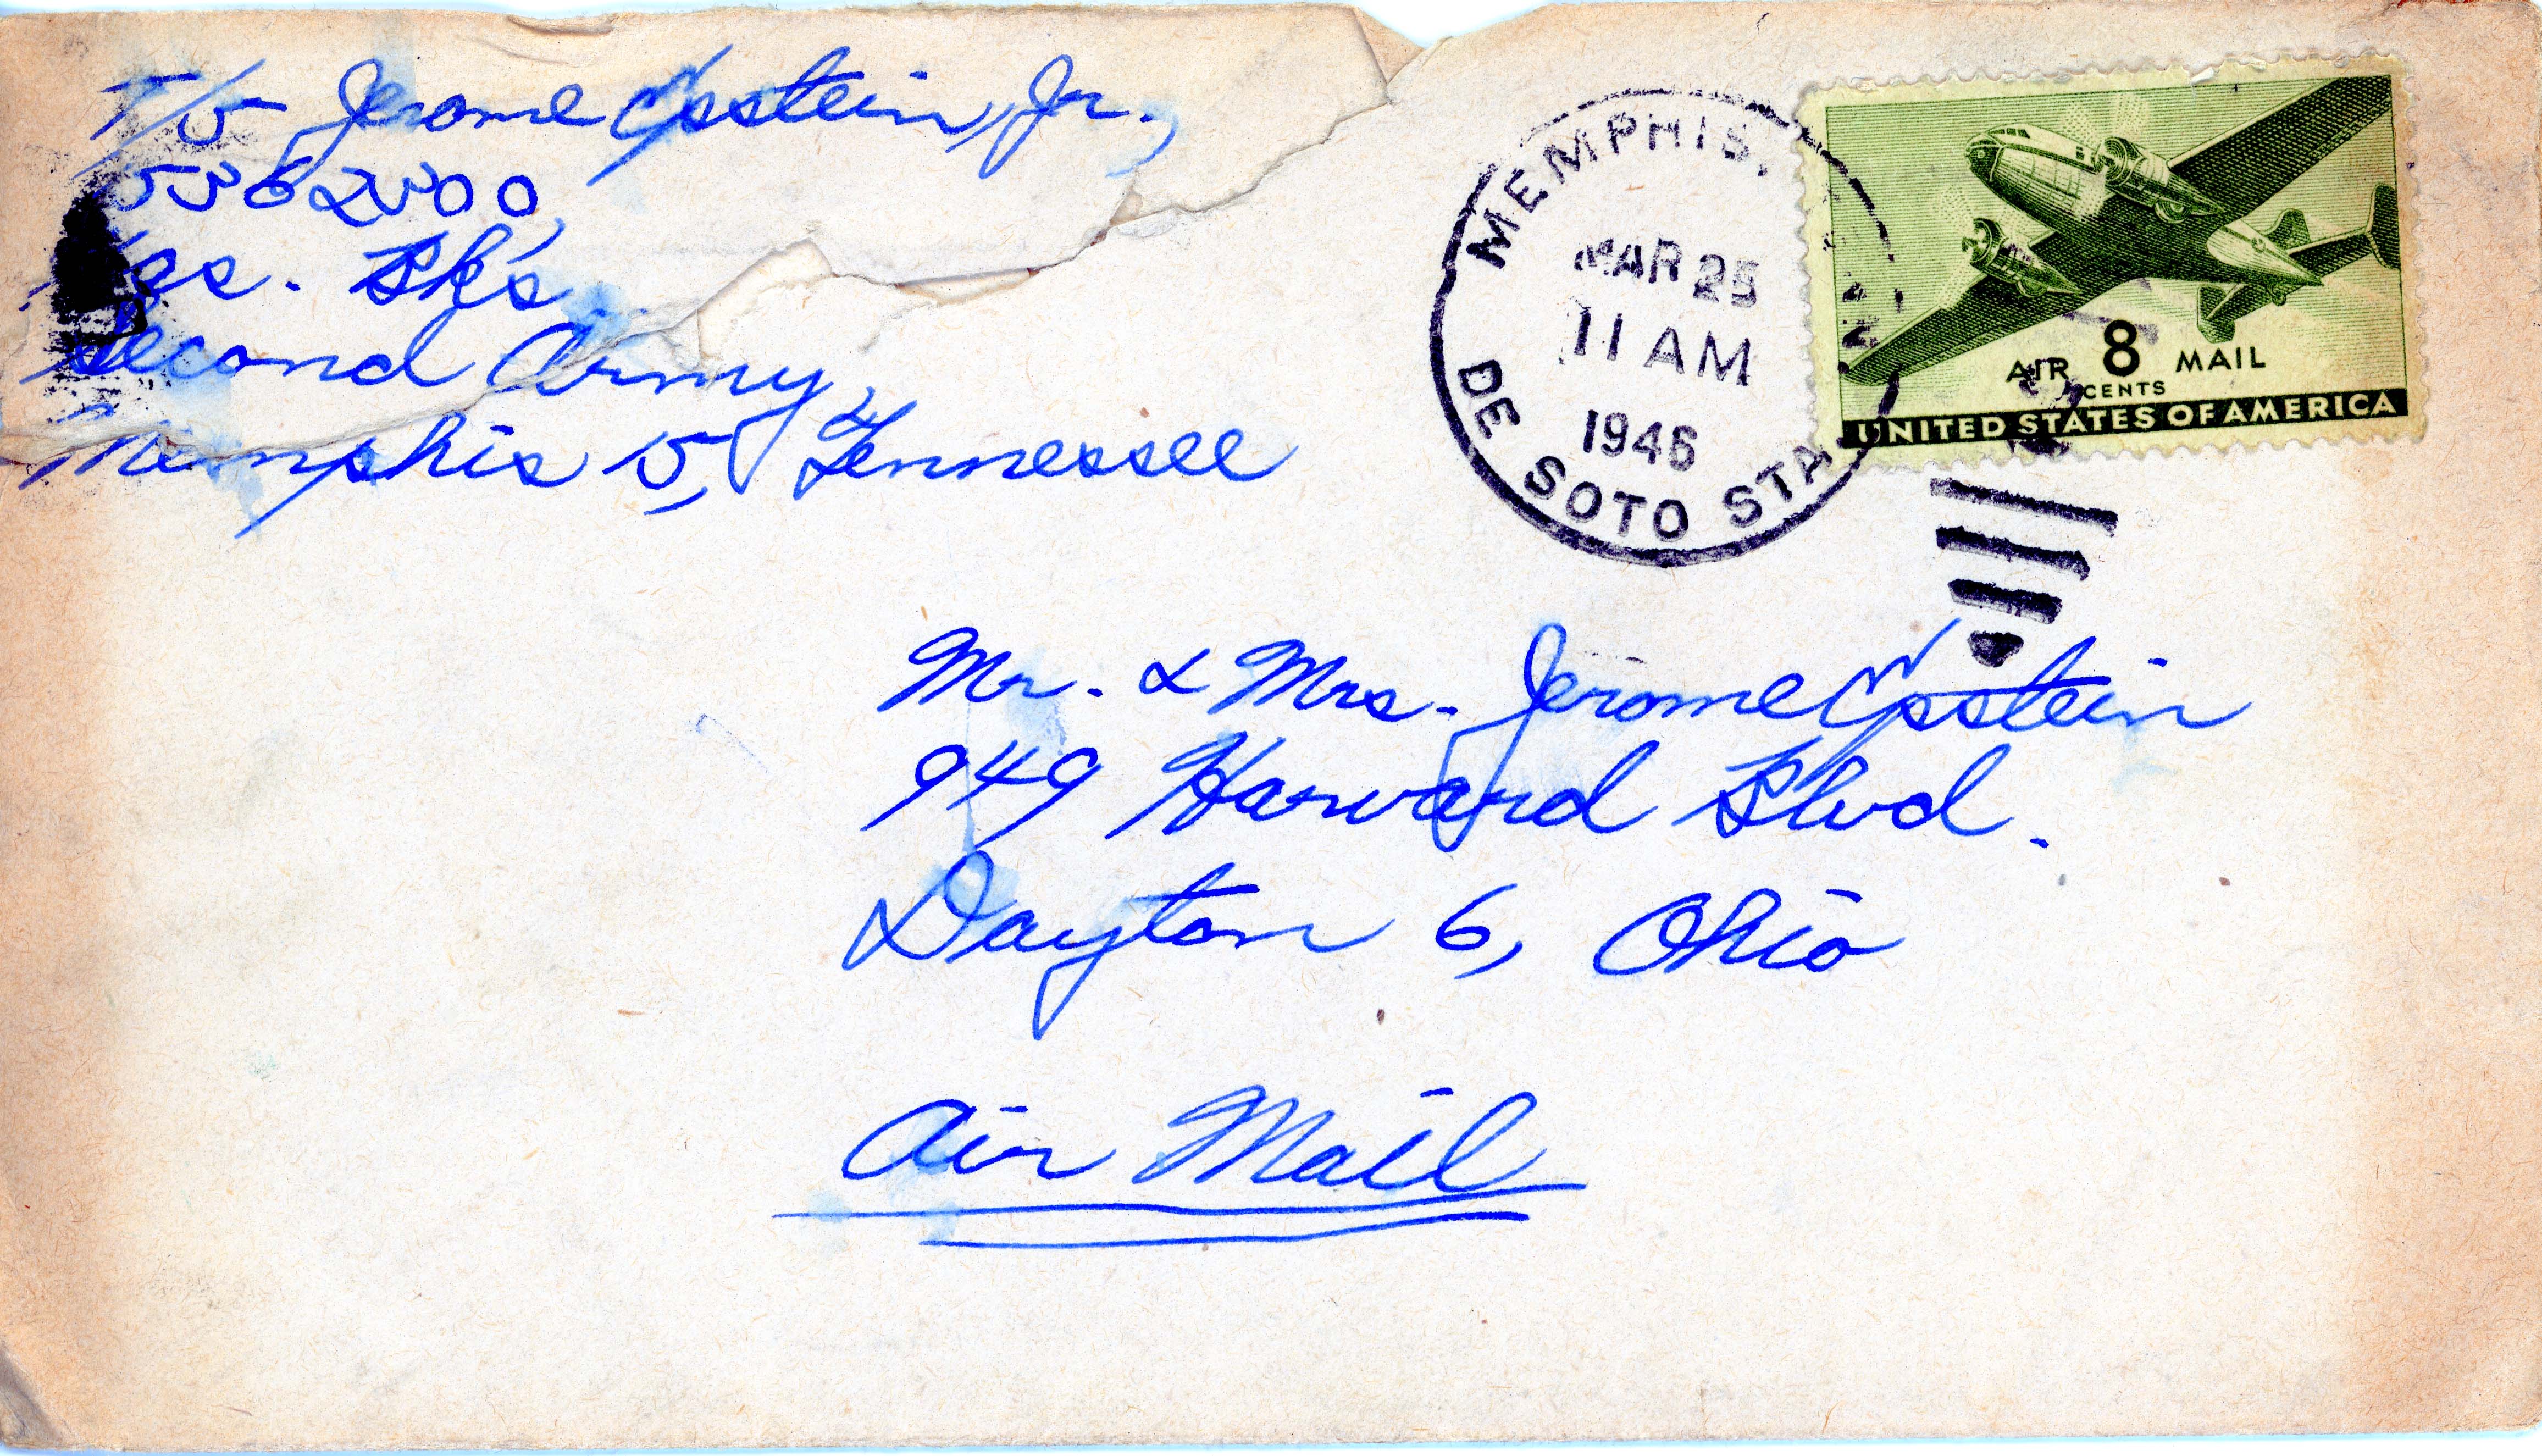 T/5 Jerome Epstein, Jr.,
Hqs. Bks,
Second Army,
Memphis 15, Tennessee
MEMPHIS,
MAR 25
11 AM
1946
DE SOTO STA
AIR 8 MAIL
CENTS
UNITED STATES OF AMERICA
Mr. & Mrs. Jerome Epstein
949 Harvard Blvd.
Dayton 6, Ohio
Air Mail